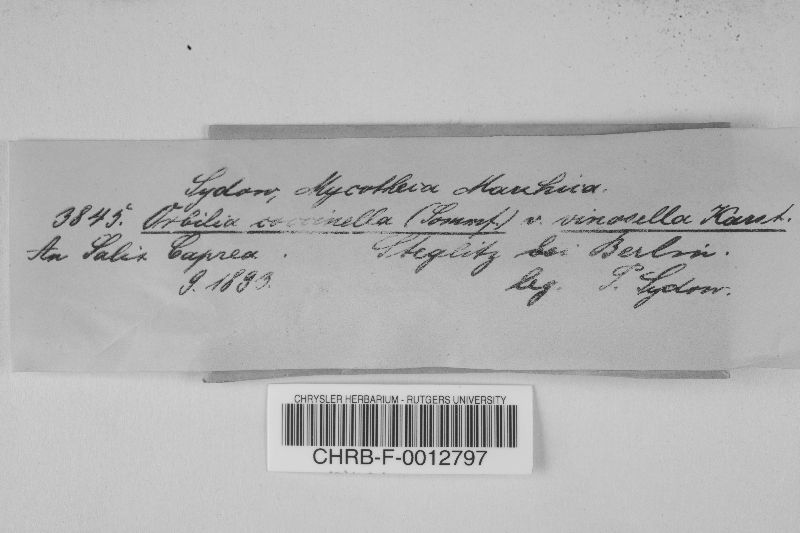 Sydow, Mycotheca Marchica.
3845. Orbilia coccinella (Sommf.) v. vinosella Karst.
An Salix Caprea. Steglitz bei Berlin.
9. 1893. leg. P. Sydow.
CHRYSLER HERBARIUM - RUTGERS UNIVERSITY
CHRB-F-0012797